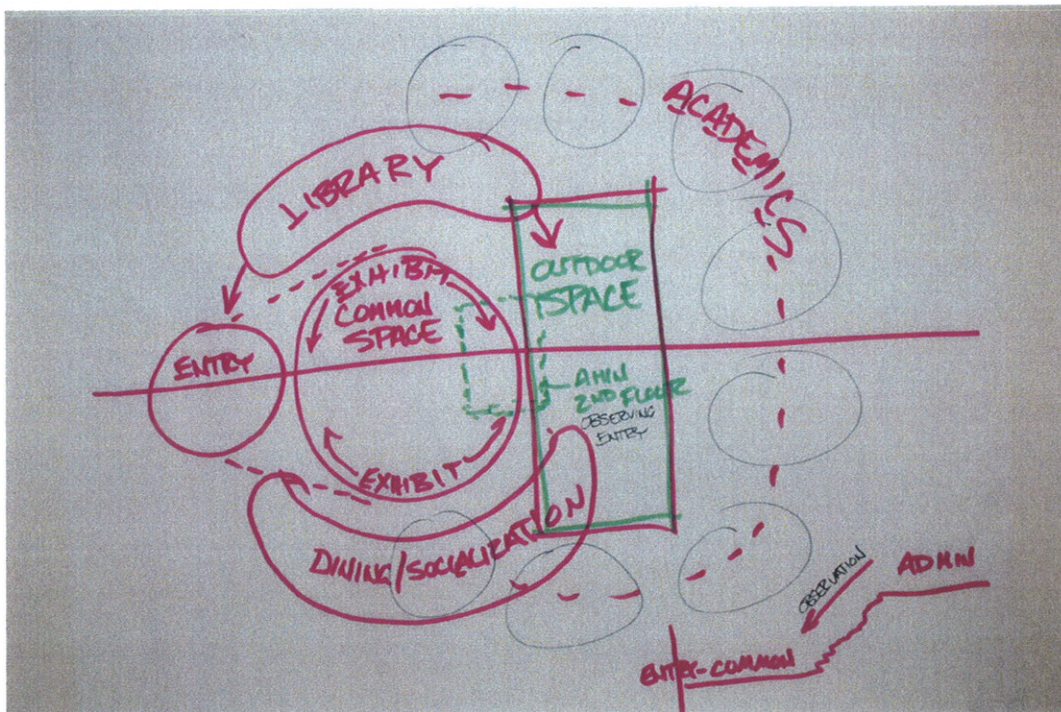 ACADEMICS
LIBRARY
EXHIBIT
COMMON
SPACE
OUTDOOR
SPACE
ENTRY
AMIN
2ND FLOOR
OBSERVING
ENTRY
EXHIBIT
DINING/SOCIALIZATION
ADMIN
OBSERVATION
ENTRY-COMMON